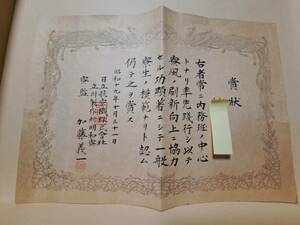 賞状
右者常ニ内務班ノ中心
トナリ率先践行シ以テ
寮風ノ刷新向上ニ協力
セル功顕著ニシテ一般
寮生ノ模範ナリト認ム
仍テ之ヲ賞ス
昭和十九年十月三十一日
日立航空機株式会社
立川製作所明和寮
寮監 加藤義一